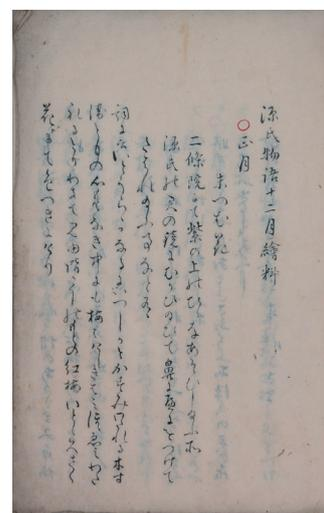 源氏物語十二月繪料
○正月
末つむ花
二條院にて紫の上のひゝなあそひし給ふ所
源氏の君の鏡にむかひ給ひて鼻に紅をつけて
たはれ給ふ事なと有
詞に日のいとうらゝかなるにいつしかとかすみわたれる木す
ゑともの心もとなき中にも梅はけしきはみほゝゑみわた
れるとりわきて見ゆ階かくしのもとの紅梅いととくさく
花にて色つきにけり